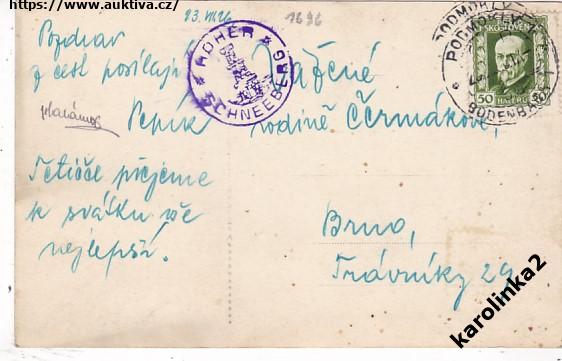 https://www.auktiva.cz/
23.VII.26
1696
Pozdrav
z cest posílají
Pepík
Tetičce přejeme
k svátku vše
nejlepší.
* HOHER *
SCHNEEBERG
Vážené
rodině Čermákové,
Brno,
Trávníky 29
PODMOKLY
BODENBACH
ČESKOSLOVENSKO
50 HALÉŘŮ 50
karolinka2